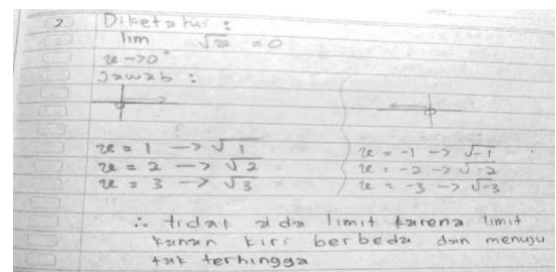 2 Diketahui :
lim √x = 0
x → 0⁺
Jawab :
x = 1 → √1
x = 2 → √2
x = 3 → √3
x = -1 → √-1
x = -2 → √-2
x = -3 → √-3
∴ tidak ada limit karena limit
kanan kiri berbeda dan menuju
tak terhingga